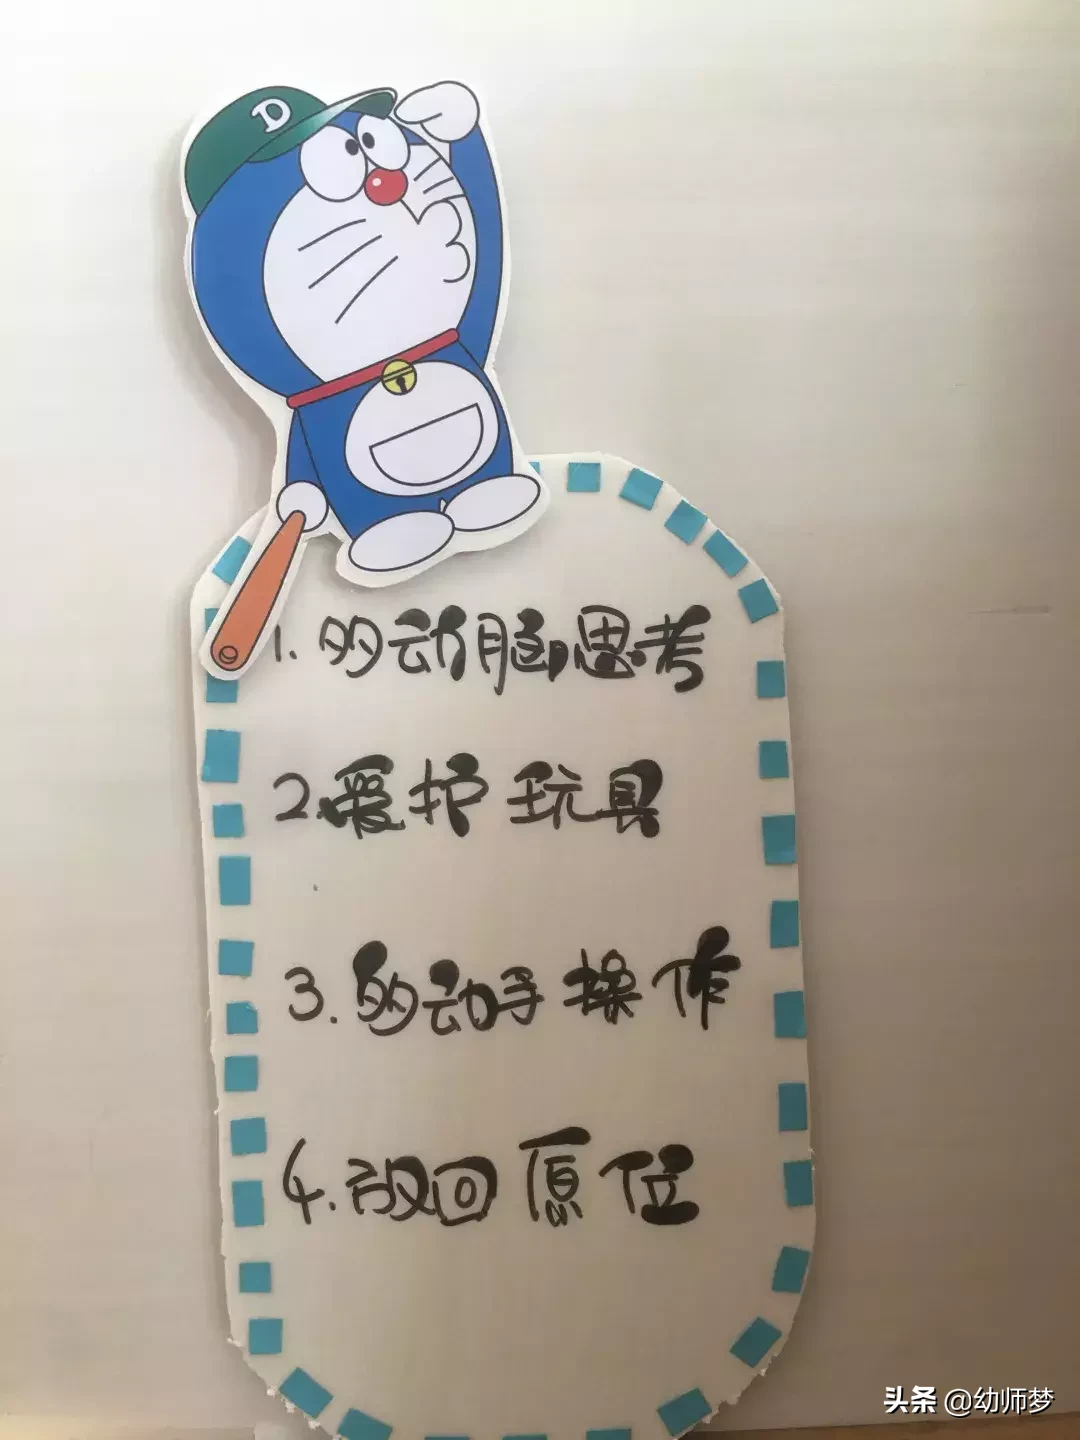 D
1. 多动脑思考
2. 爱护玩具
3. 多动手操作
4. 放回原位
头条 @幼师梦